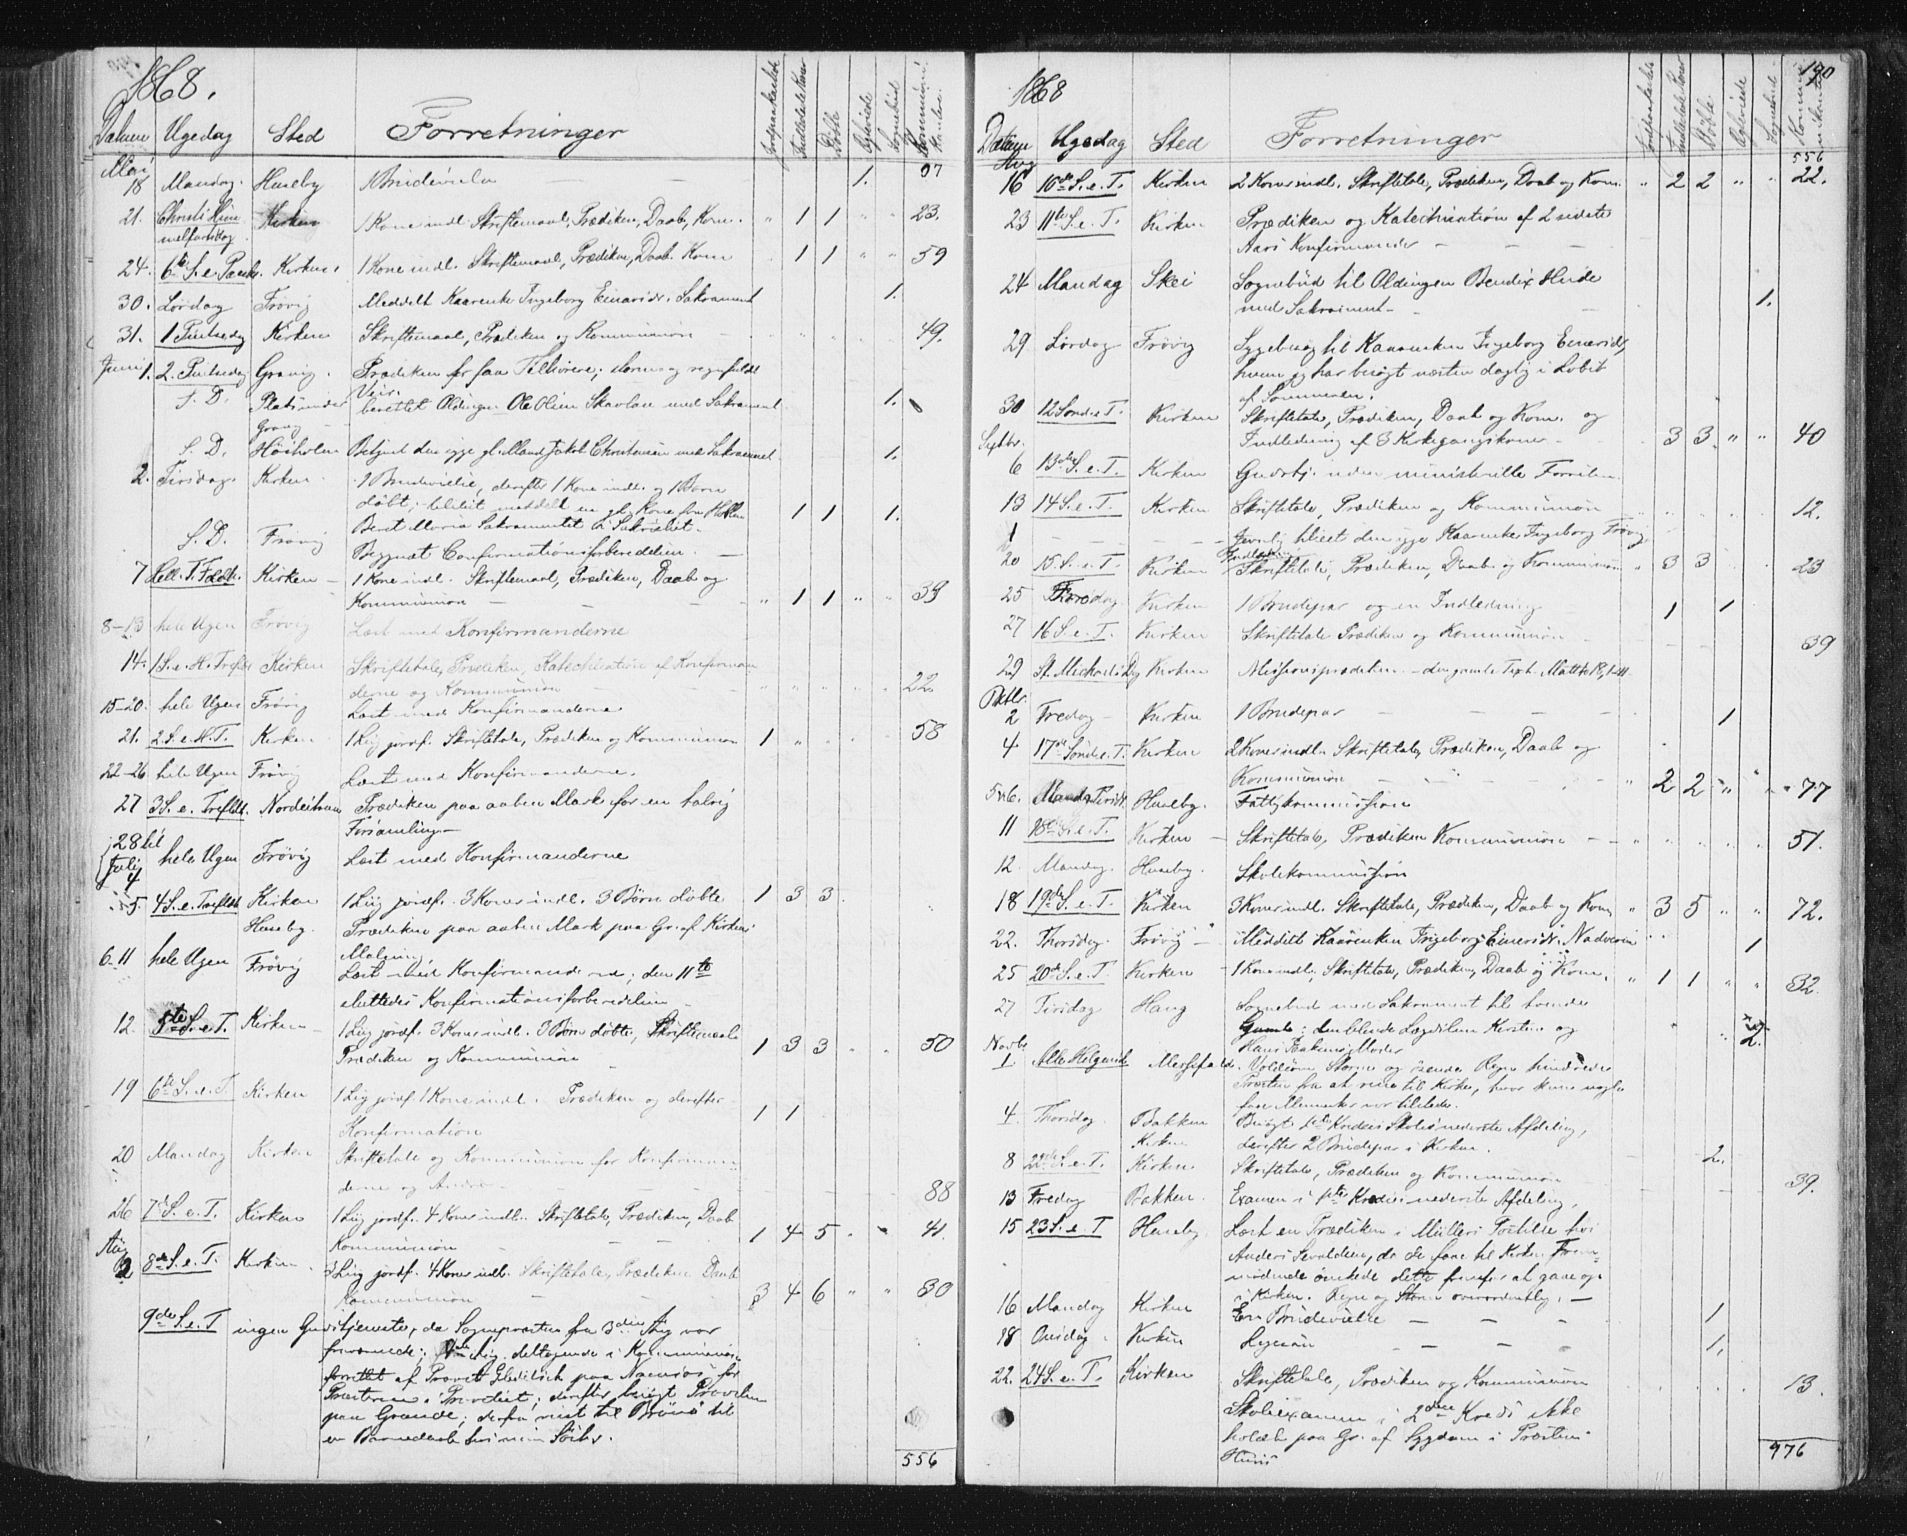 1868.
Datum Ugedag Sted Forretninger Jordpaakastede Indledede Koner Døbte Ægteviede Sognebud Kommunikanter
Mai
18 Mandag. Huseby 1 Brudevielse 1. 07
21. Christi Himmelfartsdag Kirken 1 Kone indl. Skriftemaal, Prædiken, Daab, Kom. " 1 1 " " 23.
24. 6te S. e. Paaske. Kirken. 1 Kone indl. Skriftemaal, Prædiken, Daab. Kom 1 1 " " 59
30. Lørdag Frøvig Meddelt Kaarenke Ingeborg Einarsdr. Sakrament 1.
31. 1 Pintsedag Kirken Skriftemaal, Prædiken og Kommunion 49.
Juni 1. 2. Pintsedag Gravig. Prædiken for faa Tilhørere; storm og regnfuldt
Veir.
S. D. Plads under berettet Oldingen Ole Olsen Skavlan med Sakrament 1.
S. D. Høiholm Betjent den syge gl. Mand Jakob Christensen med Sakramentet 1.
2. Tirsdag. Kirken. 1 Brudevielse, derefter 1 Kone indl. og 1 Barn
døbt; tilsist meddelt en gl. Kone fra 1 1 1.
Berit Maria Sakramentet i Sakristiet.
S. D. Frøvig Begyndt Confirmationsforberedelsen.
7 Hell. T. Fdsd. Kirken 1 Kone indl. Skriftemaal, Prædiken, Daab og
Kommunion " 1 1 " " 39
8-13 hele Ugen Frøvig Læst med Konfirmanderne
14. 1 S. e. H. Trefdh Kirken Skriftetale, Prædiken, Katechisation af Konfirman
derne og Kommunion 22.
15-20. hele Ugen Frøvig Læst med Konfirmanderne
21. 2 S. e. H. T. Kirken 1 Lig jordf. Skriftetale, Prædiken og Kommunion 1 " 58
22-26 hele Ugen Frøvig Læst med Konfirmanderne.
27 3 S. e. Trefdh. Prædiken paa aaben Mark for en talrig
Forsamling
28 til Juli 4 hele Ugen Frøvig Læst med Konfirmanderne
5. 4 S. e. Trefdh Kirken 1 Lig jordf. 3 Koner indl. 3 Børn døbte 1 3 3
Huseby. Prædiken paa aaben Mark paa Gr. af Kirkens
Maling
6-11 hele Ugen Frøvig Læst med Konfirmanderne; den 11te
sluttedes Konfirmationsforberedelsen
12. 5te S. e. T. Kirken 1 Lig jordf. 3 Koner indl. 3 Børn døbte, Skriftemaal
Prædiken og Kommunion 1 3 3 " " 50
19 6te S. e. T Kirken 1 Lig jordf 1 Kone indl. Prædiken og derefter
Konfirmation 1 1
20 Mandag Kirken Skriftetale og Kommunion for Konfirman-
derne og Andre 88
26 7de S. e. T. Kirken 1 Lig jordf. 4 Koner indl. Skriftetale, Prædiken, Daab
Kommunion 1 4 5 41.
Aug
2 8de S. e. T. Kirken 3 Lig jordf. 4 Koner indl. Skriftetale, Prædiken Daab
Kommunion 3 4 6 " " 80
9de S. e. T ingen Gudstjeneste, da Sognepræsten fra 3die Aug var
fraværende; Aug. deltagende i Kommunion
forrettet af Provst Gleditsch paa Nærøe for
Præsterne i Provstiet; derefter besøgt Provsten
paa Grande; derfra reist til Brønø til
en Barnedaab hos min Søster.
556
1868
190
Datum Ugedag Sted Forretninger Jordpaakastede Indledede Koner Døbte Ægteviede Sognebud Kommunikanter
Aug 556
16 10de S. e. T. Kirken 2 Koner indl. Skriftetale, Prædiken, Daab og Kom. " 2 2 " " 22.
23 11te S. e. T. Kirken Prædiken og Katechisation af 2 sidste
Aars Konfirmander
24 Mandag Skei Sognebud til Oldingen Bendix Hinde
med Sakrament 1.
29 Lørdag Frøvig Sygebesøg til Kaarenken Ingeborg Einersdr,
hvem jeg har besøgt næsten daglig i Løbet
af Sommeren.
30 12 Sond. e T. Kirken Skriftetale, Prædiken, Daab og Kom. og
Septbr. Indledning af 3 Kirkegangskoner 3 3 " " 40
6 13de S. e. T. Kirken Gudstj. uden ministerielle Forretn.
13 14 S. e. T. Kirken Skriftetale, Prædiken og Kommunion 12.
Jevnlig tilseet den syge Kaarenke Ingeborg Frøvig
20 15. S. e. T. Kirken Indledn. Skriftetale, Prædiken, Daab og Kommunion " 3 3 23
25 Fredag Kirken 1 Brudepar og en Indledning 1 1
27 16 S. e. T. Kirken Skriftetale Prædiken og Kommunion 39
29 St. Michaelsdag Kirken Missionsprædiken - den gamle Text Matth 18, 1-11
Oktbr.
2 Fredag Kirken 1 Brudepar 1
4 17de Sond e. T. Kirken 2 Koner indl. Skriftetale, Prædiken, Daab og
Kommunion " 2 2 " " 77
5&6. Mand & Tirsd. Huseby. Fattigkommission
11 18de S. e. T. Kirken Skriftetale, Prædiken Kommunion 51.
12. Mandag Huseby. Skolekommission
18 19de S. e. T Kirken 3 Koner indl. Skriftetale, Prædiken, Daab og Kom " 3 5 " " 72.
22. Thorsdag. Frøvig Meddelt Kaarenken Ingeborg Einersdr. Nadveren 1
25 20de S. e. T. Kirken 1 Kone indl. Skriftetale, Prædiken, Daab og Kom. " 1 1 " " 32.
27 Tirsdag Haug Sognebud med Sakrament til tvende
Gamle; den blinde Lægdslem Kirstine og
Hans Isaksens Moder 2.
Novbr
1. Alle Helgensd. Voldsom Storm og øsende Regn hindrede
Præsten fra at reise til Kirken, hvor kun nogle
faae Mennesker var tilstede.
4. Thorsdag. Bakken Besøgt 1ste Kredses Skoles nederste Afdeling,
Kirken derefter 2 Brudepar i Kirken. 2.
8 22de S. e. T. Kirken Skriftetale, Prædiken og Kommunion 39.
13 Fredag Bakken. Examen i 1ste Kredses nederste Afdeling,
15 23 S. e. T Huseby Læst en Prædiken i Müllers Postille hos
Anders Sevaldsen, da de faae til Kirken Frem-
mødende ønskede dette fremfor at gaae op
i Kirken. Regn og Storm overordentlig.
16 Mandag Kirken En Brudevielse 1
18 Onsdag Kirken Ligesaa 1.
22. 24 S. e. T. Kirken Skriftetale, Prædiken og Kommunion 13.
Skoleexamen i 2den Kreds ikke
holdt paa Gr. af Sygdom i Præstens
Huus
976